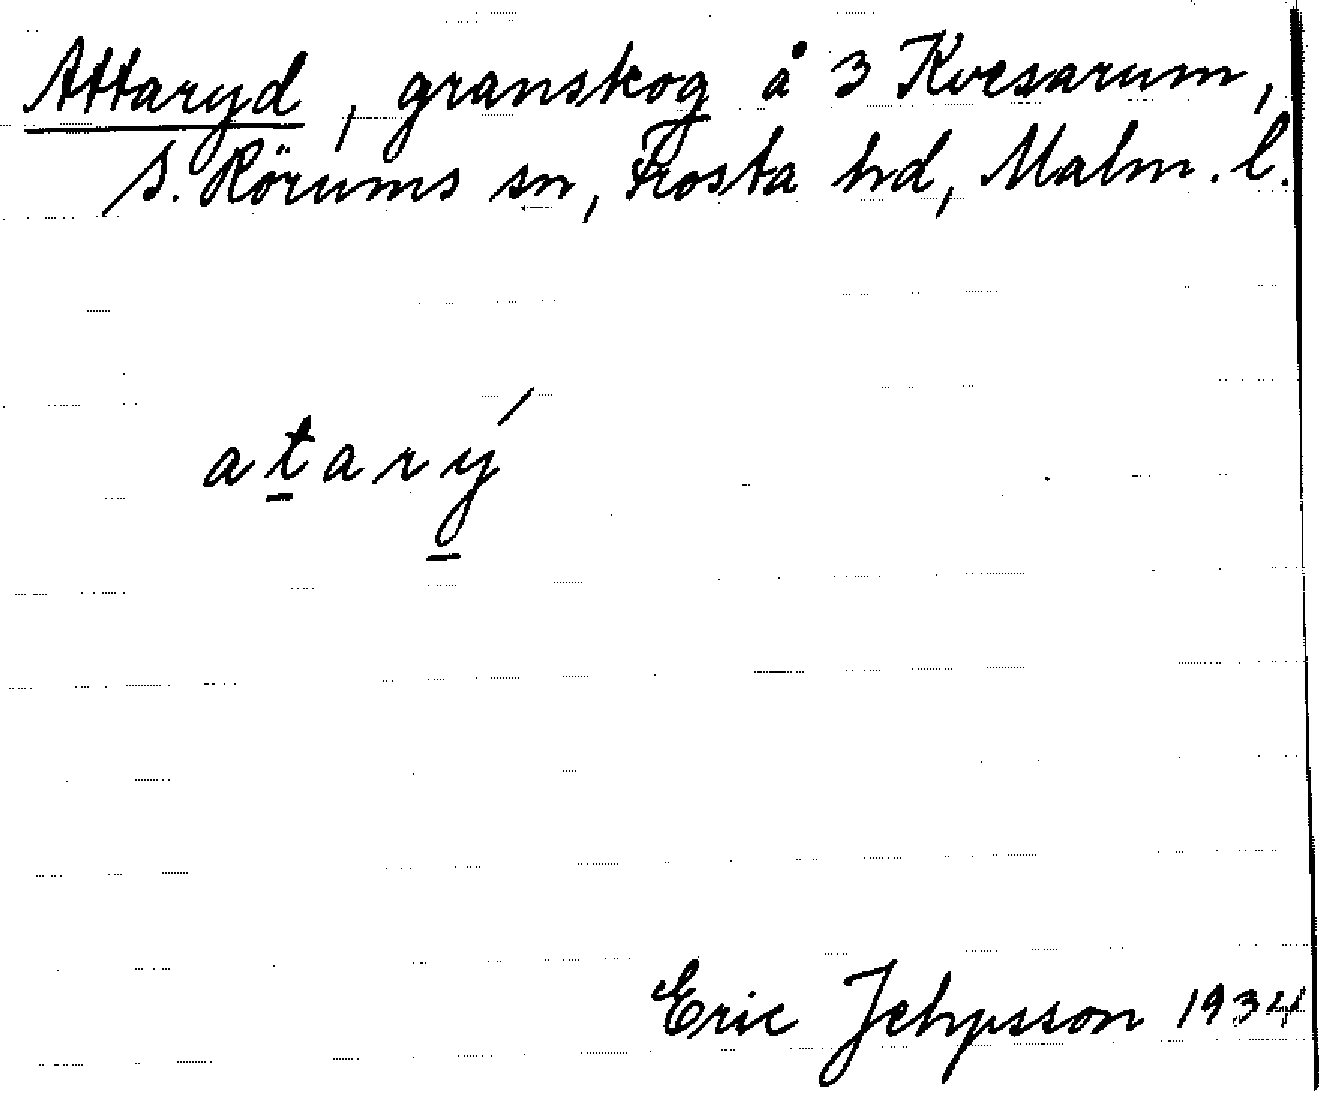 Attaryd, granskog å 3 Kvesarum,
S. Rörums sn, Frosta hd, Malm. l.
a t̲ a r ý̲
Eric Jehpsson 1934